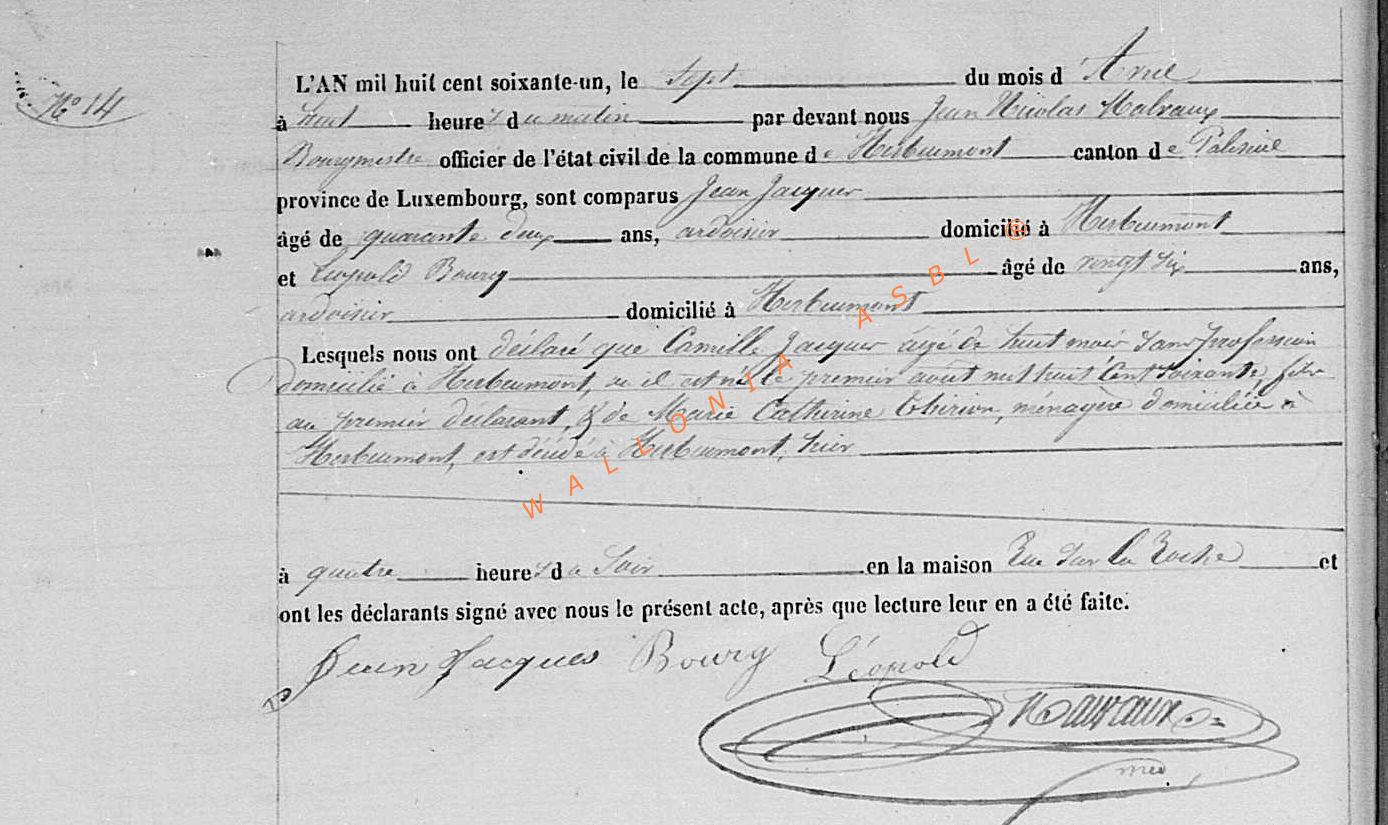 N° 14
L'AN mil huit cent soixante-un, le sept du mois d'Avril
à huit heures du matin par devant nous Jean Nicolas Malvaux
Bourgmestre officier de l'état civil de la commune de Herbeumont canton de Paliseul
province de Luxembourg, sont comparus Jean Jacques
âgé de quarante deux ans, ardoisier domicilié à Herbeumont
et Léopold Bourg âgé de vingt six ans,
ardoisier domicilié à Herbeumont
Lesquels nous ont déclaré que Camille Jacques âgé de huit mois sans profession
domicilié à Herbeumont, où il est né le premier août mil huit cent soixante, fils
au premier déclarant, & de Marie Catherine Thirion, ménagère domiciliée à
Herbeumont, est décédé à Herbeumont, hier
à quatre heures du soir en la maison Rue sur la Roche et
ont les déclarants signé avec nous le présent acte, après que lecture leur en a été faite.
Jean Jacques Bourg Léopold
Malvaux
WALLONIA ASBL ®